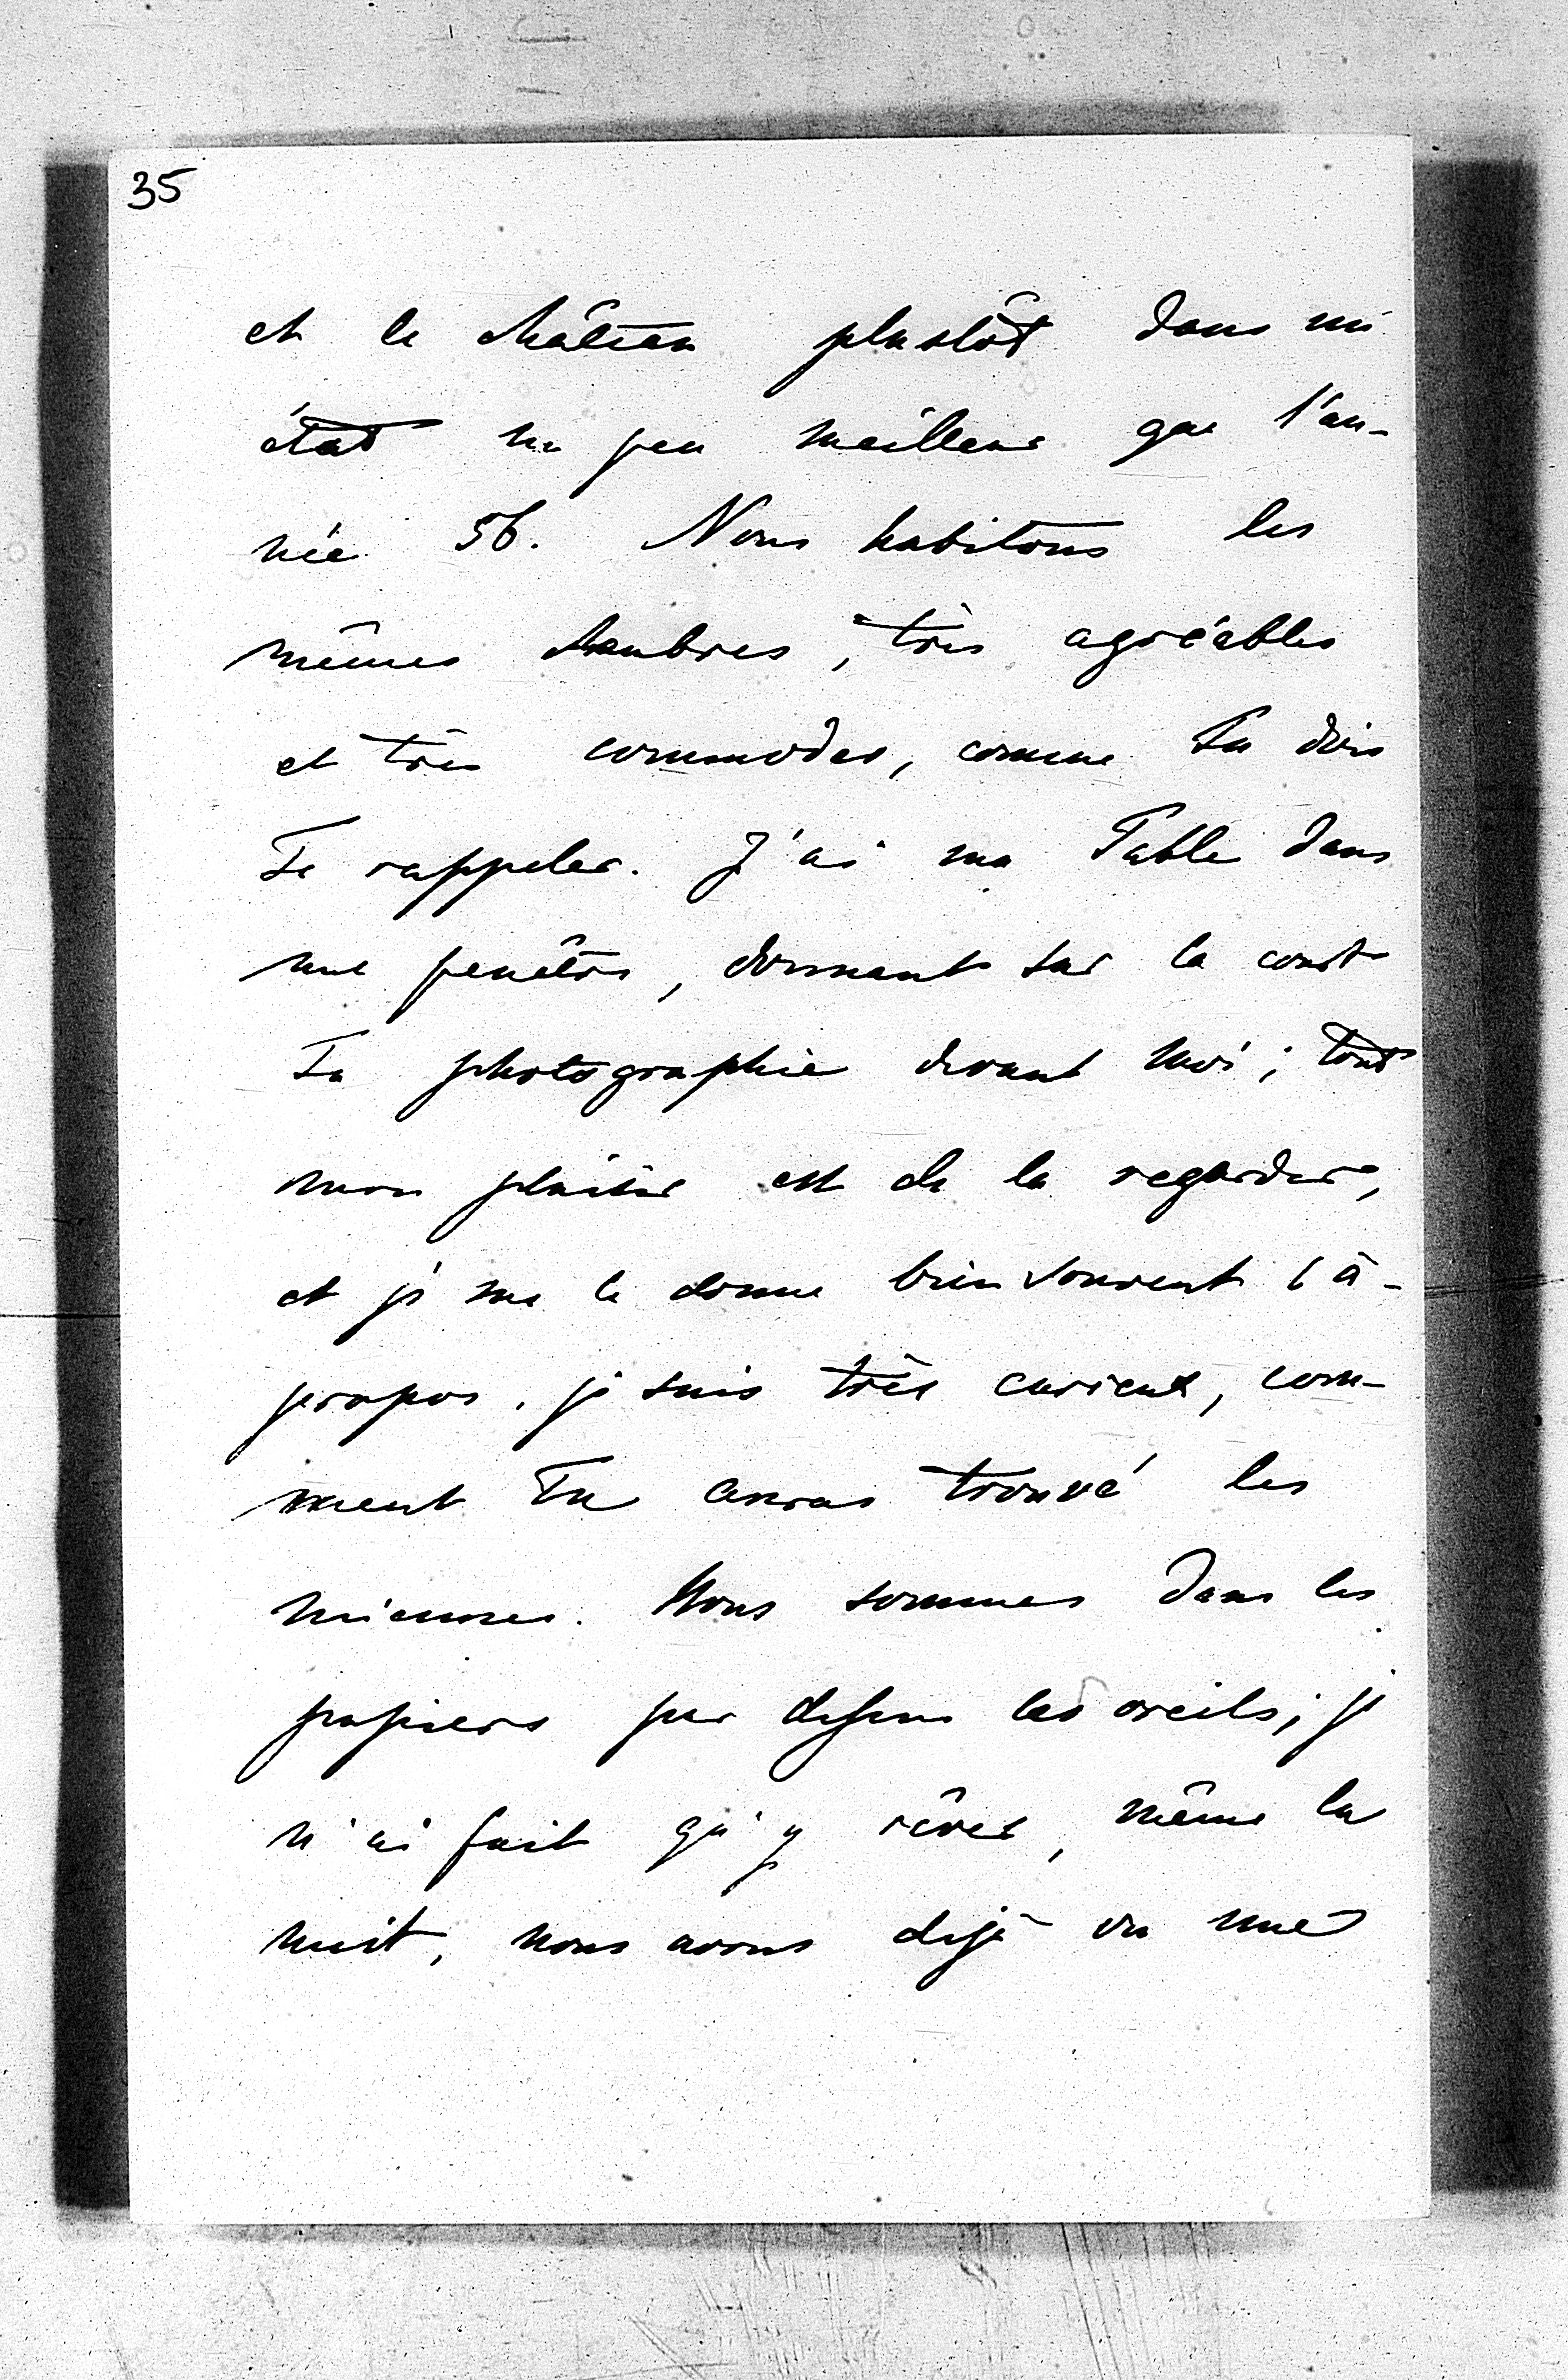 35
et le château plustôt dans un
état un peu meilleur que l'an-
née 56. Nous habitons les
mêmes chambres, très agréables
et très commodes, comme Tu dois
Te rappeler. J'ai ma Table dans
une fenêtre, donnant sur la court
Ta photographie devant moi; tout
mon plaisir est de la regarder,
et je me le donne bien souvent à-
propos, je suis très curieux, com-
ment Tu auras trouvé les
miennes. Nous sommes dans les
papiers par dessus les oreils; je
n'ai fait qu'y rêver, même la
nuit, nous avons dejà vu une